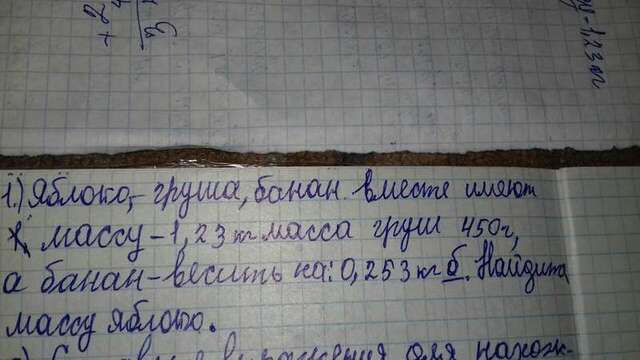 у-1,23 кг
1.) Яблоко,- груша, банан вместе имеют
массу-1,23 кг масса груш 450г,
а банан-весить на: 0,253 кг б. Найдите
массу яблоко.